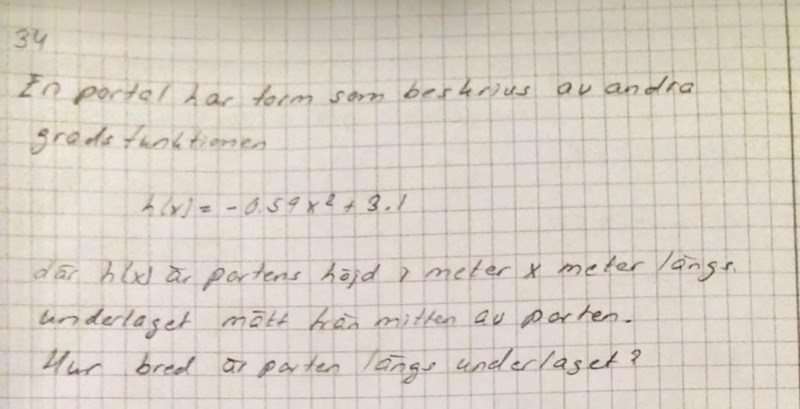 34
En portal har form som beskrivs av andra
grads funktionen
h(x) = -0.59x² + 3.1
där h(x) är portens höjd i meter x meter längs
underlaget mätt från mitten av porten.
Hur bred är porten längs underlaget?